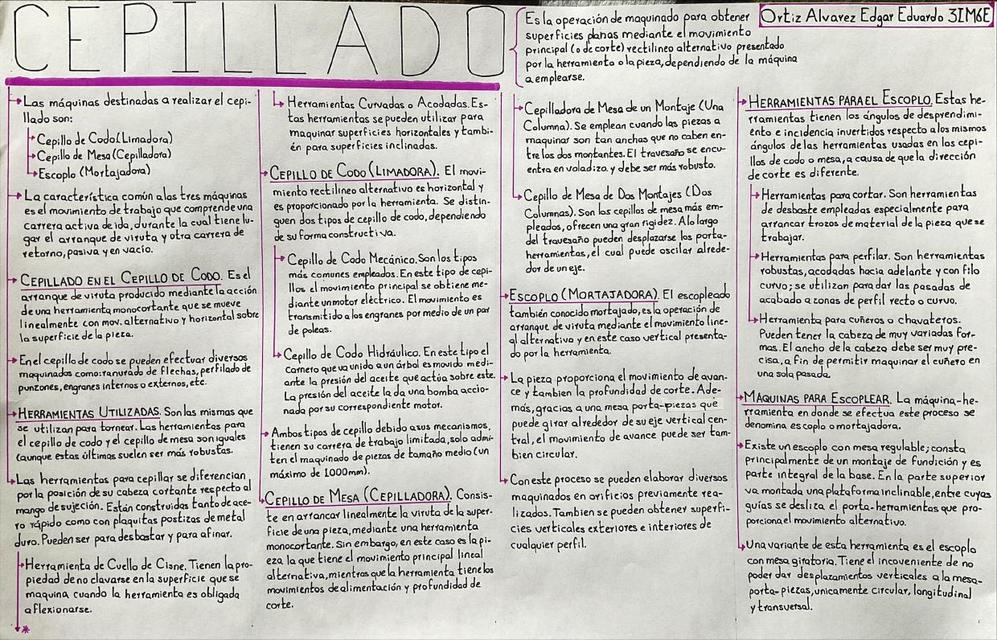 CEPILLADO
Es la operación de maquinado para obtener
superficies planas mediante el movimiento
principal (o de corte) rectilineo alternativo presentado
por la herramienta o la pieza, dependiendo de la máquina
a emplearse.
Ortiz Alvarez Edgar Eduardo 3IM6E
Las máquinas destinadas a realizar el cepi-
llado son:
Cepillo de Codo (Limadora)
Cepillo de Mesa (Cepilladora)
Escoplo (Mortajadora)
La característica común a las tres máquinas
es el movimiento de trabajo que comprende una
carrera activa de ida, durante la cual tiene lu-
gar el arranque de viruta y otra carrera de
retorno, pasiva y en vacío.
CEPILLADO EN EL CEPILLO DE CODO. Es el
arranque de viruta producido mediante la acción
de una herramienta monocortante que se mueve
linealmente con mov. alternativo y horizontal sobre
la superficie de la pieza.
En el cepillo de codo se pueden efectuar diversos
maquinados como: ranurado de flechas, perfilado de
punzones, engranes internos o externos, etc.
HERRAMIENTAS UTILIZADAS. Son las mismas que
se utilizan para tornear. Las herramientas para
el cepillo de codo y el cepillo de mesa son iguales
(aunque estas últimas suelen ser más robustas.
Las herramientas para cepillar se diferencian
por la posición de su cabeza cortante respecto al
mango de sujeción. Están construidas tanto de ace-
ro rápido como con plaquitas postizas de metal
duro. Pueden ser para desbastar y para afinar.
Herramienta de Cuello de Cisne. Tienen la pro-
piedad de no clavarse en la superficie que se
maquina cuando la herramienta es obligada
a flexionarse.
*
Herramientas Curvadas o Acodadas. Es-
tas herramientas se pueden utilizar para
maquinar superficies horizontales y tambi-
én para superficies inclinadas.
CEPILLO DE CODO (LIMADORA). El movi-
miento rectilineo alternativo es horizontal y
es proporcionado por la herramienta. Se distin-
guen dos tipos de cepillo de codo, dependiendo
de su forma constructiva.
Cepillo de Codo Mecánico. Son los tipos
más comunes empleados. En este tipo de cepi-
llos el movimiento principal se obtiene me-
diante un motor eléctrico. El movimiento es
transmitido a los engranes por medio de un par
de poleas.
Cepillo de Codo Hidráulico. En este tipo el
carnero que va unido a un árbol es movido medi-
ante la presión del aceite que actúa sobre este.
La presión del aceite la da una bomba accio-
nada por su correspondiente motor.
Ambos tipos de cepillo debido a sus mecanismos,
tienen su carrera de trabajo limitada, solo admi-
ten el maquinado de piezas de tamaño medio (un
máximo de 1000mm).
CEPILLO DE MESA (CEPILLADORA). Consis-
te en arrancar linealmente la viruta de la super-
ficie de una pieza, mediante una herramienta
monocortante. Sin embargo, en este caso es la pi-
eza la que tiene el movimiento principal lineal
alternativo, mientras que la herramienta tiene los
movimientos de alimentación y profundidad de
corte.
Cepilladora de Mesa de un Montaje (Una
Columna). Se emplean cuando las piezas a
maquinar son tan anchas que no caben en-
tre los dos montantes. El travesaño se encu-
entra en voladizo y debe ser más robusto.
Cepillo de Mesa de Dos Montajes (Dos
Columnas). Son los cepillos de mesa más em-
pleados, ofrecen una gran rigidez. A lo largo
del travesaño pueden desplazarse los porta-
herramientas, el cual puede oscilar alrede-
dor de un eje.
ESCOPLO (MORTAJADORA). El escopleado
también conocido mortajado, es la operación de
arranque de viruta mediante el movimiento line-
al alternativo y en este caso vertical presenta-
do por la herramienta.
La pieza proporciona el movimiento de avan-
ce y tambien la profundidad de corte. Ade-
más, gracias a una mesa porta-piezas que
puede girar alrededor de su eje vertical cen-
tral, el movimiento de avance puede ser tam-
bien circular.
Con este proceso se pueden elaborar diversos
maquinados en orificios previamente rea-
lizados. Tambien se pueden obtener superfi-
cies verticales exteriores e interiores de
cualquier perfil.
HERRAMIENTAS PARA EL ESCOPLO. Estas he-
rramientas tienen los ángulos de desprendimi-
ento e incidencia invertidos respecto a los mismos
ángulos de las herramientas usadas en los cepi-
llos de codo o mesa, a causa de que la dirección
de corte es diferente.
Herramientas para cortar. Son herramientas
de desbaste empleadas especialmente para
arrancar trozos de material de la pieza que se
trabajar.
Herramientas para perfilar. Son herramientas
robustas, acodadas hacia adelante y con filo
curvo; se utilizan para dar las pasadas de
acabado a zonas de perfil recto o curvo.
Herramienta para cuñeros o chaveteros.
Pueden tener la cabeza de muy variadas for-
mas. El ancho de la cabeza debe ser muy pre-
cisa, a fin de permitir maquinar el cuñero en
una sola pasada.
MÁQUINAS PARA ESCOPLEAR. La máquina-he-
rramienta en donde se efectua este proceso se
denomina escoplo o mortajadora.
Existe un escoplo con mesa regulable; consta
principalmente de un montaje de fundición y es
parte integral de la base. En la parte superior
va montada una plataforma inclinable, entre cuyas
guías se desliza el porta-herramientas que pro-
porciona el movimiento alternativo.
Una variante de esta herramienta es el escoplo
con mesa giratoria. Tiene el incoveniente de no
poder dar desplazamientos verticales a la mesa-
porta-piezas, unicamente circular, longitudinal
y transversal.